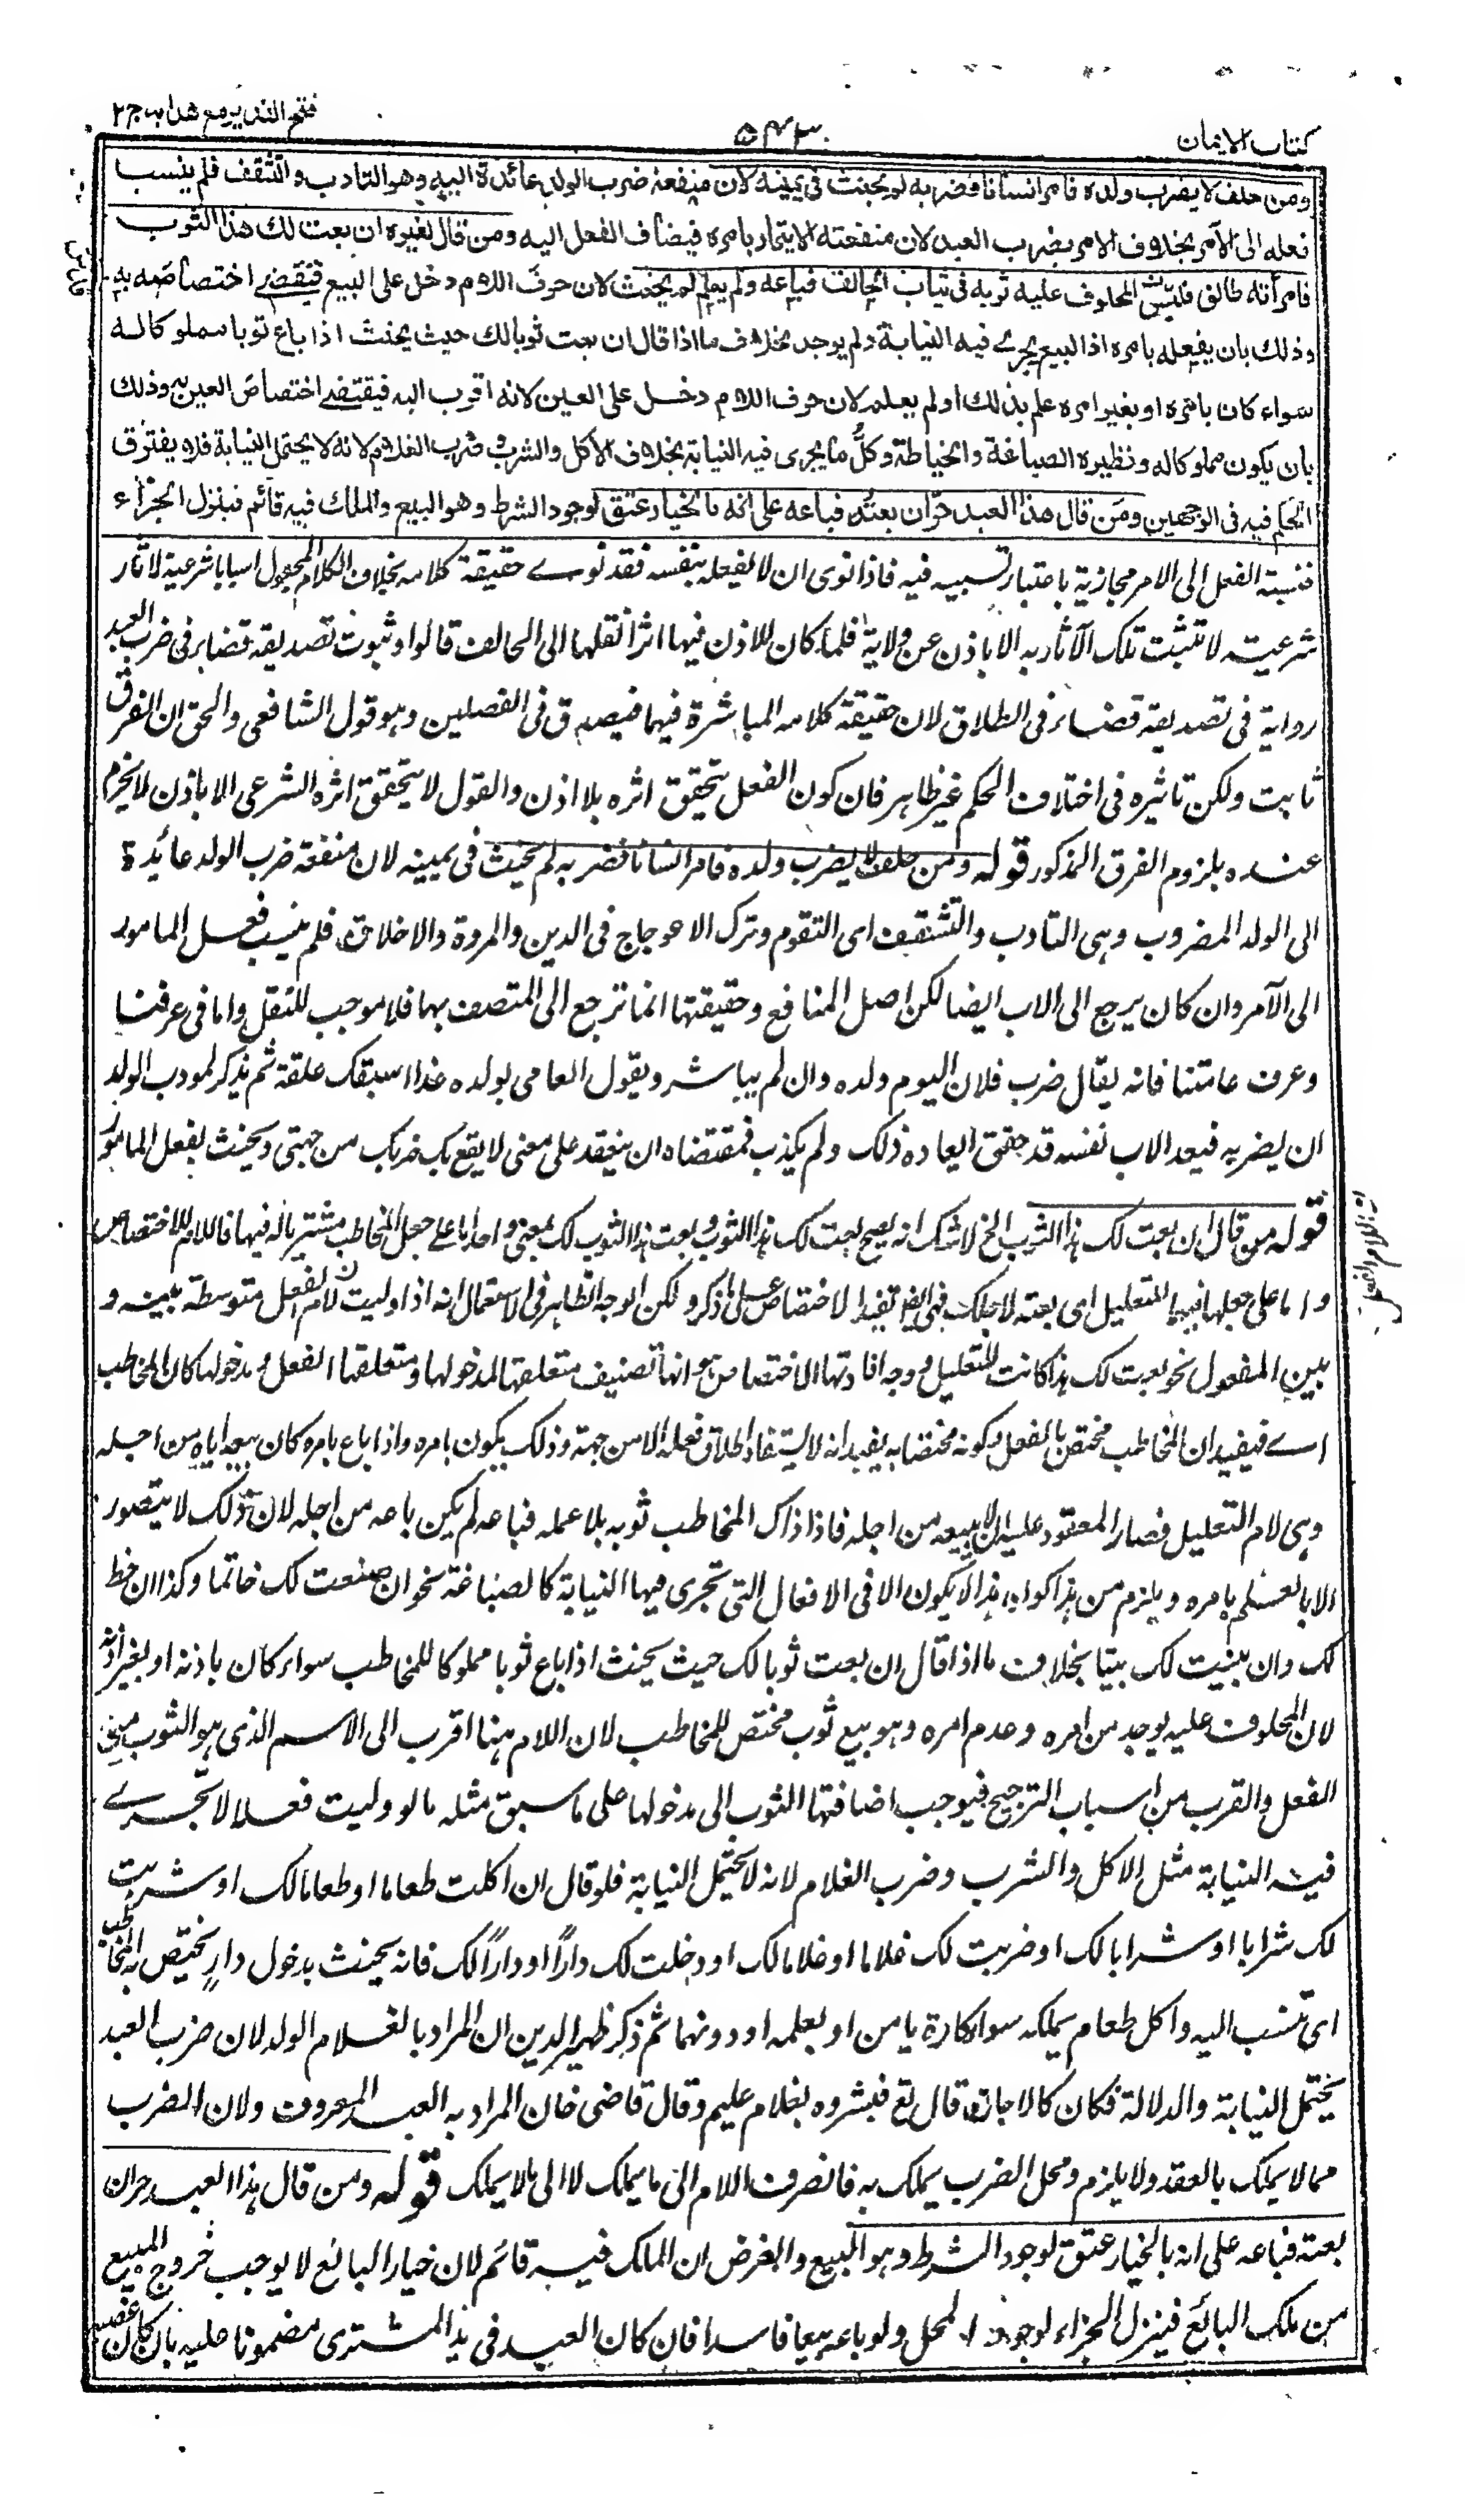 كتاب الايمان
٥٤٣
فتح القدير مع هدايه ج ٢
ومن حلف لا يضرب ولده فامر انسانا فضربه لم يحنث في يمينه لان منفعة ضرب الولد عائدة اليه وهو التادب والتثقف فلم ينسب
فعله الى الآمر بخلاف الامر بضرب العبد لان منفعته الايتمار بامره فيضاف الفعل اليه ومن قال لغيره ان بعت لك هذا الثوب
فامرأته طالق فدس المحلوف عليه ثوبه في ثياب الحالف فباعه ولم يعلم لم يحنث لان حرف اللام دخل على البيع فتقضي اختصاصه به
وذلك بان يفعله بامره اذ البيع يجري فيه النيابة ولم يوجد بخلاف ما اذا قال ان بعت ثوبا لك حيث يحنث اذا باع ثوبا مملوكا له
سواء كان بامره او بغير امره علم بذلك او لم يعلم لان حرف اللام دخل على العين لانه اقرب اليه فيقتضي اختصاص العين به وذلك
بان يكون مملوكا له ونظيره الصياغة والخياطة وكل ما يجرى فيه النيابة بخلاف الاكل والشرب وضرب الغلام لانه لا يحتمل النيابة فلا يفترق
الحكم فيه في الوجهين ومن قال هذا العبد حر ان بعته فباعه على انه بالخيار عتق لوجود الشرط وهو البيع والملك فيه قائم فينزل الجزاء
فنسبة الفعل الى الامر مجازية باعتبار تسببيه فيه فاذا نوى ان لا يفعله بنفسه فقد نوى حقيقة كلامه بخلاف الكلام المجعول اسبابا شرعية لآثار
شرعية لا تثبت تلك الآثار به الا باذن عن ولاية فلما كان للاذن فيها اثر نقلها الى الحالف قالوا وثبوت تصديقه قضاء في ضرب العبد
رواية في تصديقه قضاء في الطلاق لان حقيقة كلامه المباشرة فيهما فيصدق في الفصلين وهو قول الشافعي والحق ان الفرق
ثابت ولكن تاثيره في اختلاف الحكم غير ظاهر فان كون الفعل يتحقق اثره بلا اذن والقول لا يتحقق اثره الشرعي الا باذن لا يجزم
عنده بلزوم الفرق المذكور قوله ومن حلف لا يضرب ولده فامر انسانا فضربه لم يحنث في يمينه لان منفعة ضرب الولد عائدة
الى الولد المضروب وهي التادب والتثقيف اى التقوم وترك الاعوجاج في الدين والمروة والاخلاق فلم ينسب فعل المامور
الى الآمر وان كان يرجع الى الاب ايضا لكن اصل المنافع وحقيقتها انما ترجع الى المتصف بها فلا موجب للنقل واما في عرفنا
وعرف عامتنا فانه يقال ضرب فلان اليوم ولده وان لم يباشر ويقول العامي لولده غدا اسبقك علقة ثم يذكر لمودب الولد
ان يضربه فيعد الاب نفسه قد حقق ايعاده ذلك ولم يكذب فمقتضاه ان ينعقد على معنى لا يقع بك ضربك من جهتي ويحنث بفعل المامور
قوله من قال ان بعت لك هذا الثوب الخ لا شك انه يصح بعت لك هذا الثوب وبعت هذا الثوب لك بمعنى واحد اما على جعل المخاطب مشتريا له فيهما فاللام للاختصاص
واما على جعلها فيهما للتعليل اى بعته لاجلك فهي ايضا تفيد الاختصاص على ما ذكر ولكن الوجه الظاهر في الاستعمال انه اذا وليت لام الفعل متوسطة بينه و
بين المفعول نحو بعت لك هذا كانت للتعليل ووجه افادتها الاختصاص هو انها تضيف متعلقها لمدخولها ومتعلقها الفعل ومدخولها كاف المخاطب
اى فيفيد ان المخاطب مختص بالفعل وكونه مختصا به يفيد انه لا يستفاد اطلاق فعله الا من جهته وذلك يكون بامره واذا باع بامره كان بيعه اياه من اجله
وهي لام التعليل فصار المعقود عليه ان لا يبيعه من اجله فاذا دس المخاطب ثوبه بلا علمه فباعه لم يكن باعه من اجله لان ذلك لا يتصور
الا بالعلم بامره ويلزم من هذا كون هذا لا يكون الا في الافعال التي تجرى فيها النيابة كالصياغة نحو ان صنعت لك خاتما وكذا ان خطت
لك وان بنيت لك بيتا بخلاف ما اذا قال ان بعت ثوبا لك حيث يحنث اذا باع ثوبا مملوكا للمخاطب سواء كان باذنه او بغير اذنه
لان المحلوف عليه يوجد من امره وعدم امره وهو بيع ثوب مختص للمخاطب لان اللام هنا اقرب الى الاسم الذى هو الثوب من
الفعل والقرب من اسباب الترجيح فيوجب اضافتها الثوب الى مدخولها على ما سبق مثله ما لو وليت فعلا لا تجرى
فيه النيابة مثل الاكل والشرب وضرب الغلام لانه لا يحتمل النيابة فلو قال ان اكلت طعاما او طعاما لك او شربت
لك شرابا او شرابا لك او ضربت لك غلاما او غلاما لك او دخلت لك دارا او دارا لك فانه يحنث بدخول دار يختص به المخاطب
اى تنسب اليه واكل طعام يملكه سواء كان بامره او بعلمه او دونهما ثم ذكر ظهير الدين ان المراد بالغلام الولد لان ضرب العبد
يحتمل النيابة والدلالة فكان كالاجارة قال تع فبشروه بغلام عليم وقال قاضى خان المراد به العبد المعروف ولان الضرب
مما لا يملك بالعقد ولا يلزم ومحل الضرب يملك به فانصرف اللام الى ما يملك لا الى ما لا يملك قوله ومن قال هذا العبد حر ان
بعته فباعه على انه بالخيار عتق لوجود الشرط وهو البيع والغرض ان الملك فيه قائم لان خيار البائع لا يوجب خروج المبيع
من ملك البائع فينزل الجزاء لوجود المحل ولو باعه بيعا فاسدا فان كان العبد في يد المشترى مضمونا عليه بان كان غصبه